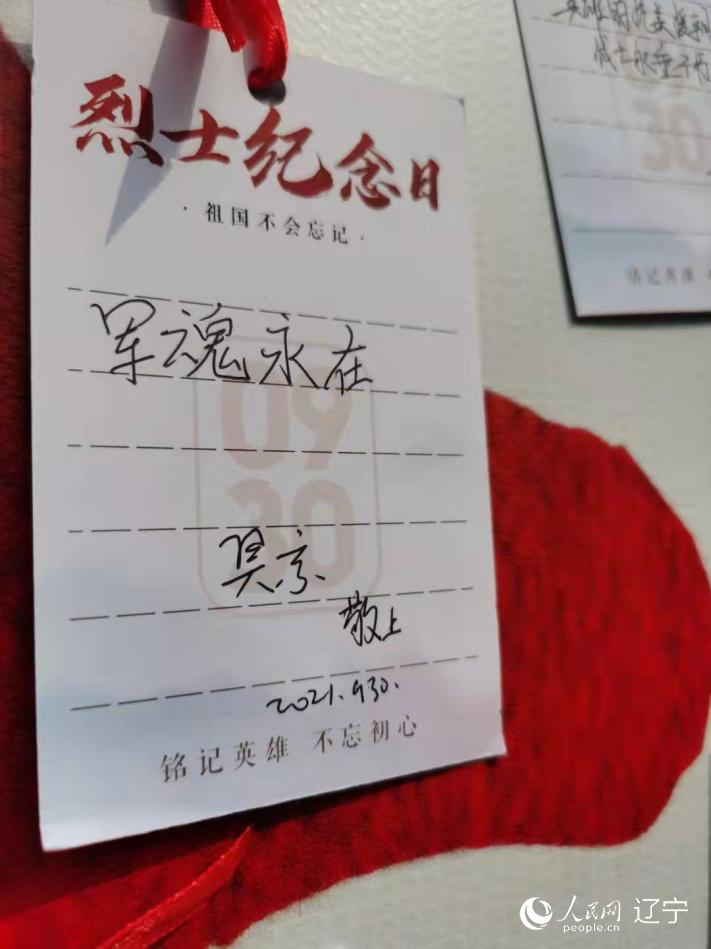 烈士纪念日
·祖国不会忘记·
军魂永在
09
30
吴京
敬上
2021.9.30.
铭记英雄 不忘初心
30
铭记英雄
人民网 辽宁
people.cn